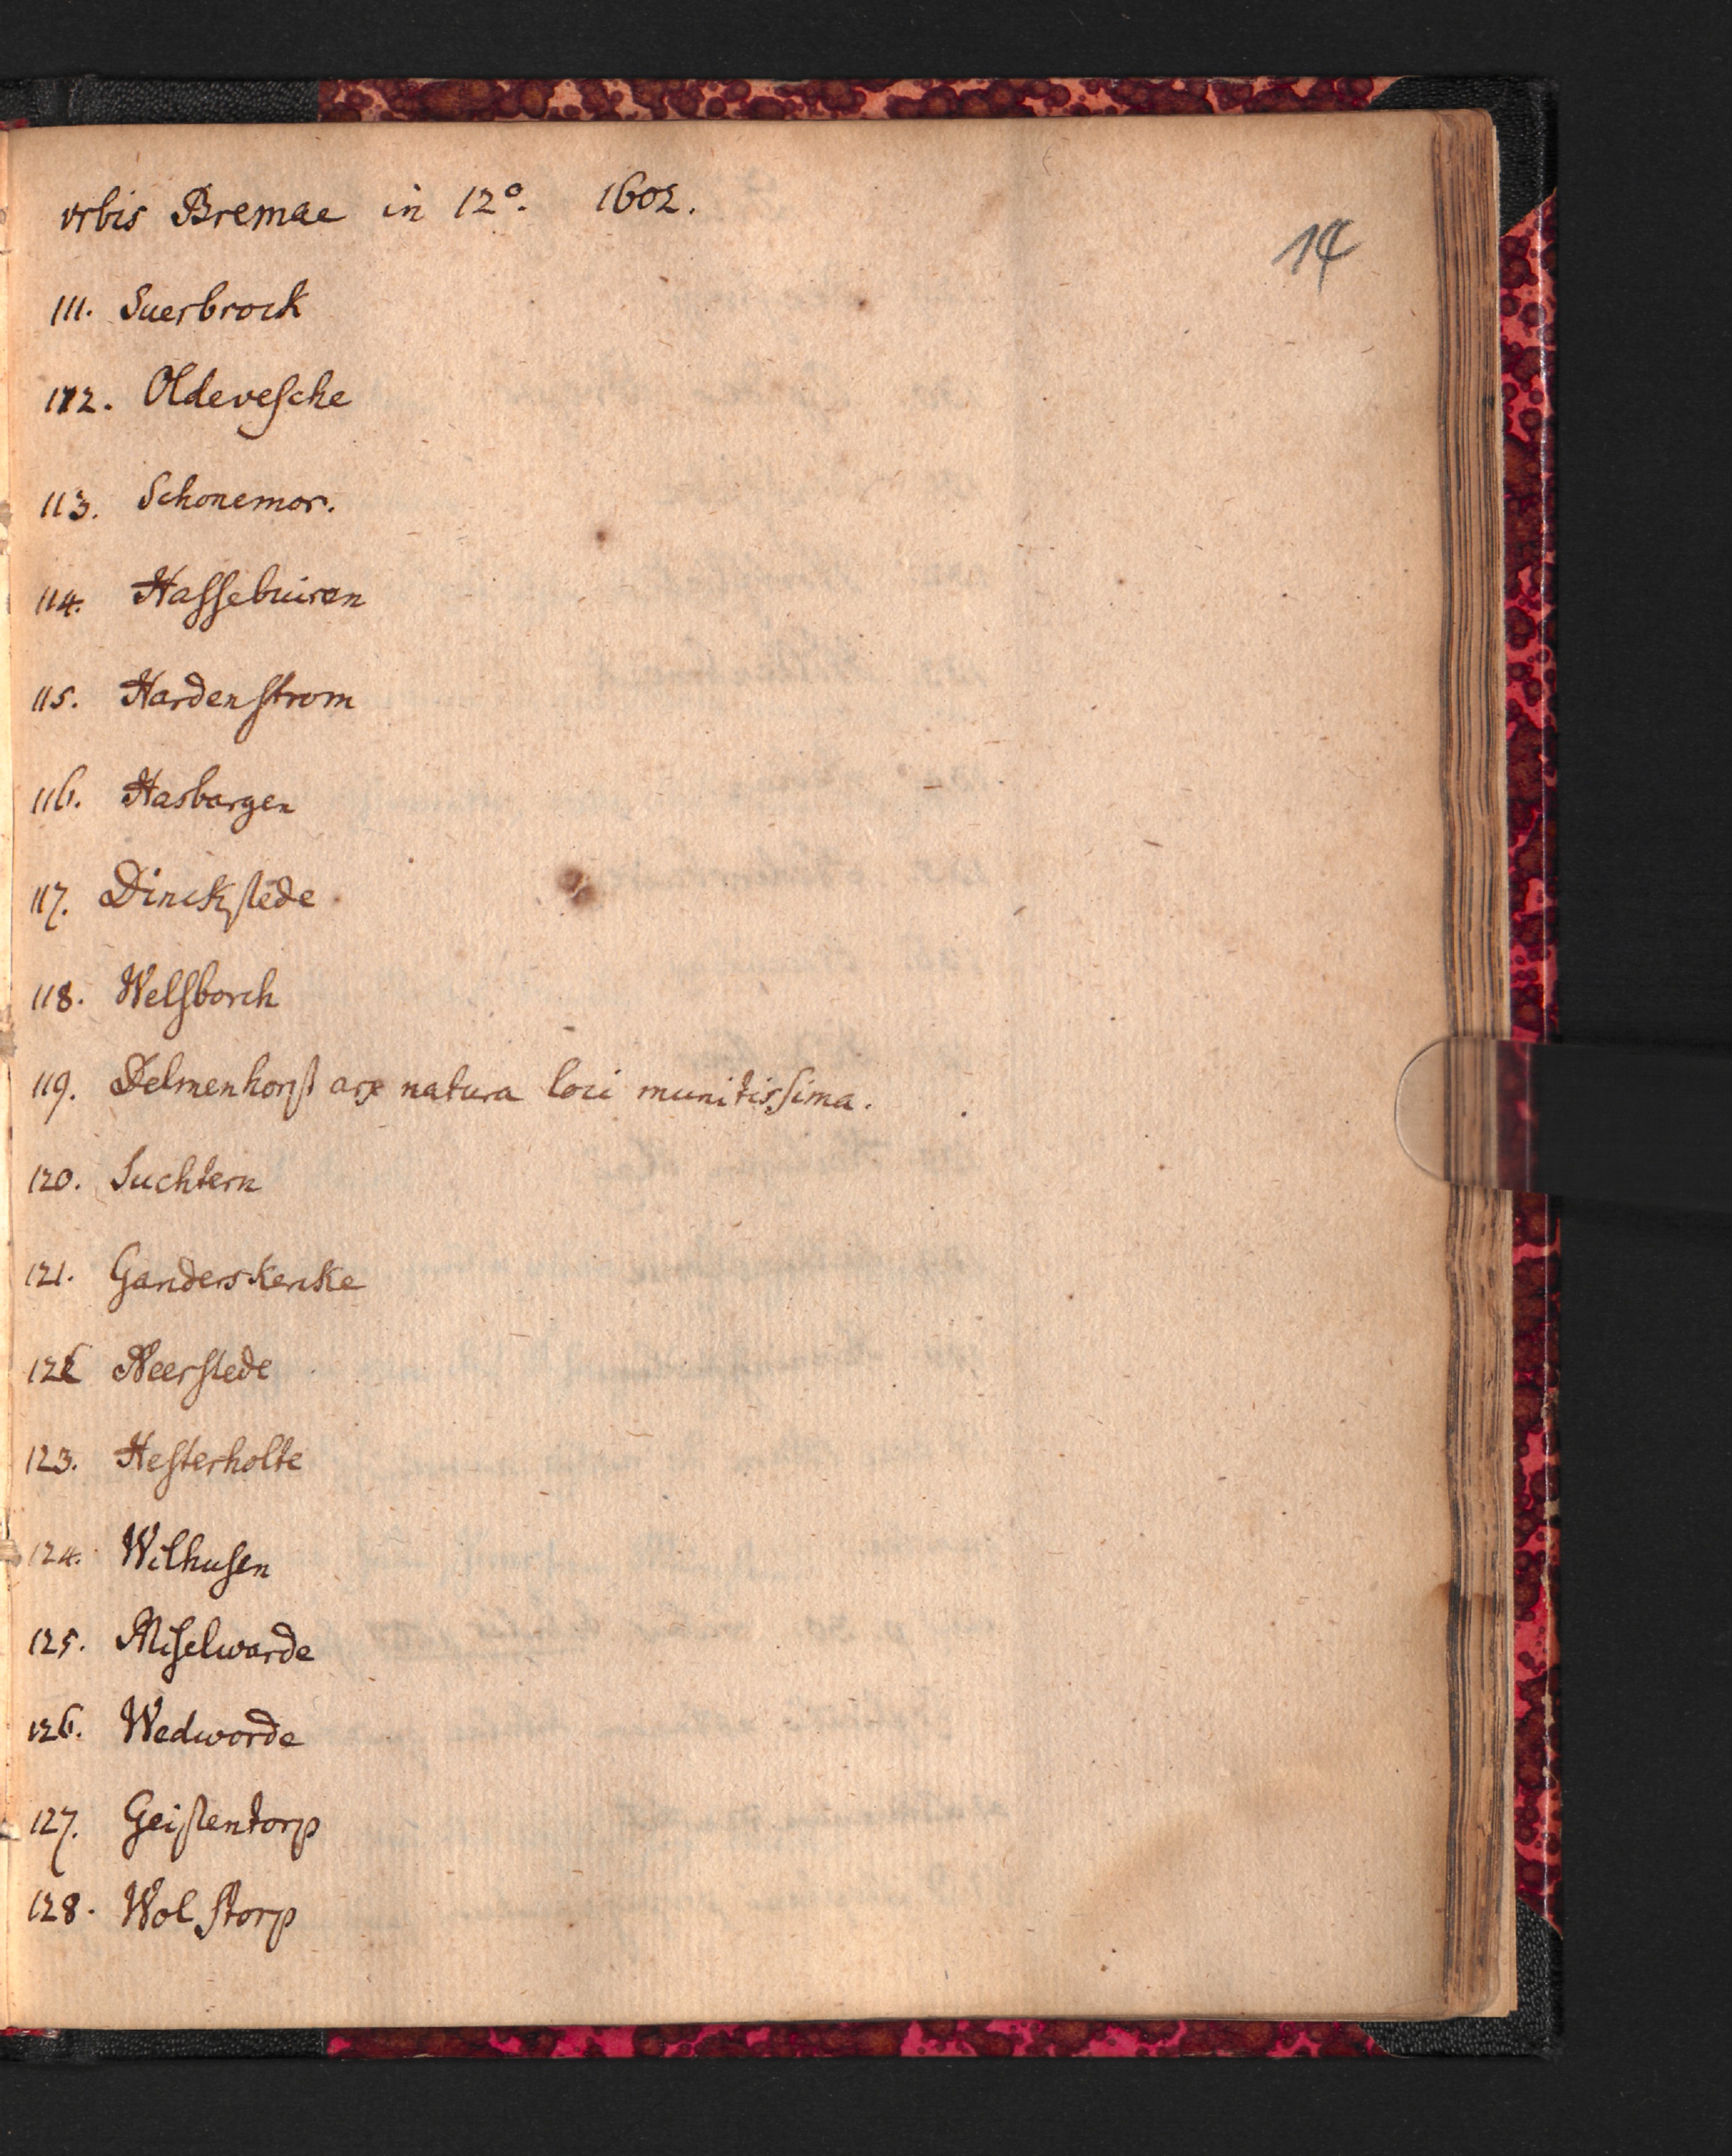 vrbis Bremae in 12°. 1602.
14
111. Suerbrock
112. Oldevesche
113. Schonemor.
114. Hassebuiren
115. Hardenstrom
116. Hasbargen
117. Dinckstede
118. Welsborch
119. Delmenhorst arx natura loci munitissima.
120. Suchtern
121. Ganderskerke
122 Neerstede
123. Hesterholte
124. Wilhusen
125. Miselwarde
126. Wedworde
127. Geistentorp
128. Wolstorp